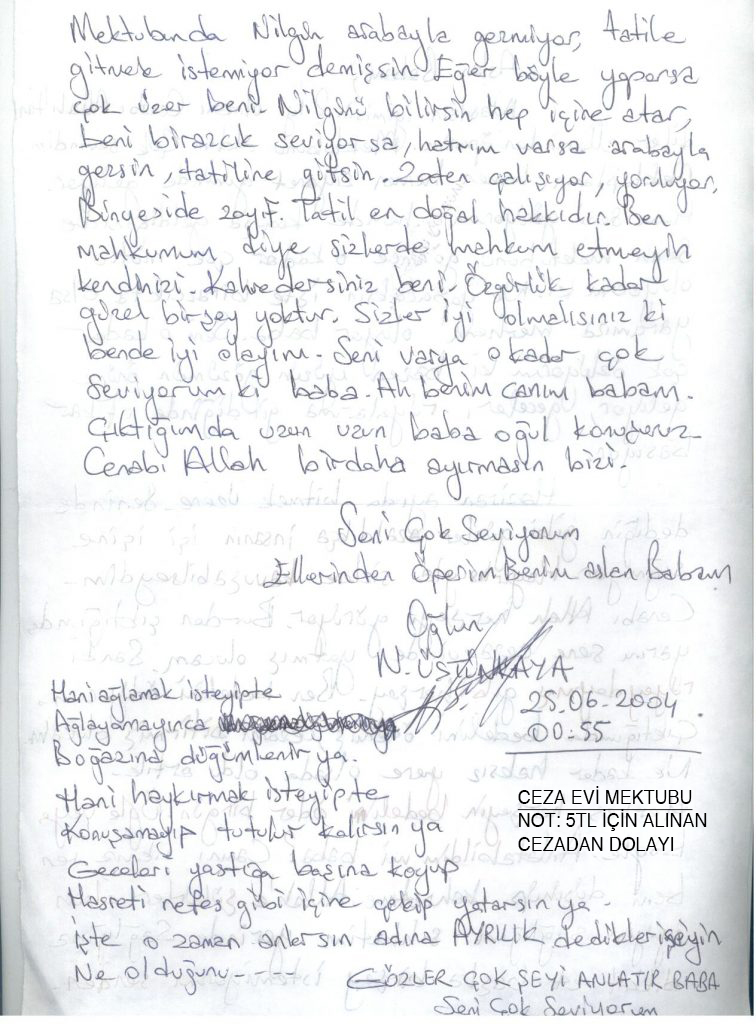 Mektubunda Nilgün arabayla gezmiyor, tatile
gitmek istemiyor demişsin. Eğer böyle yaparsa
çok üzer beni. Nilgünü bilirsin hep içine atar,
beni birazcık seviyorsa, hatrım varsa arabayla
gezsin, tatiline gitsin. Zaten çalışıyor, yoruluyor,
Bünyeside zayıf. Tatil en doğal hakkıdır. Ben
mahkumum diye sizlerde mahkum etmeyin
kendinizi. Kahredersiniz beni. Özgürlük kadar
güzel birşey yoktur. Sizler iyi olmalısınız ki
bende iyi olayım. Seni varya o kadar çok
Seviyorum ki baba. Ah benim canım babam.
Çıktığımda uzun uzun baba oğul konuşuruz.
Cenabı Allah birdaha ayırmasın bizi.
Seni Çok Seviyorum
Ellerinden Öperim Benim aslan Babam
Oğlun
N. ÜSTÜNKAYA
25.06.2004
00:55
Hani ağlamak isteyipte
Ağlayamayınca
Boğazına düğümlenir ya.
Hani haykırmak isteyipte
Konuşamayıp tutulur kalırsın ya
Geceleri yastığa başına koyup
Hasreti nefes gibi içine çekip yatarsın ya.
İşte o zaman anlarsın adına AYRILIK dedikleri şeyin
Ne olduğunu----
GÖZLER ÇOK ŞEYİ ANLATIR BABA
Seni Çok Seviyorum
CEZA EVİ MEKTUBU
NOT: 5TL İÇİN ALINAN
CEZADAN DOLAYI